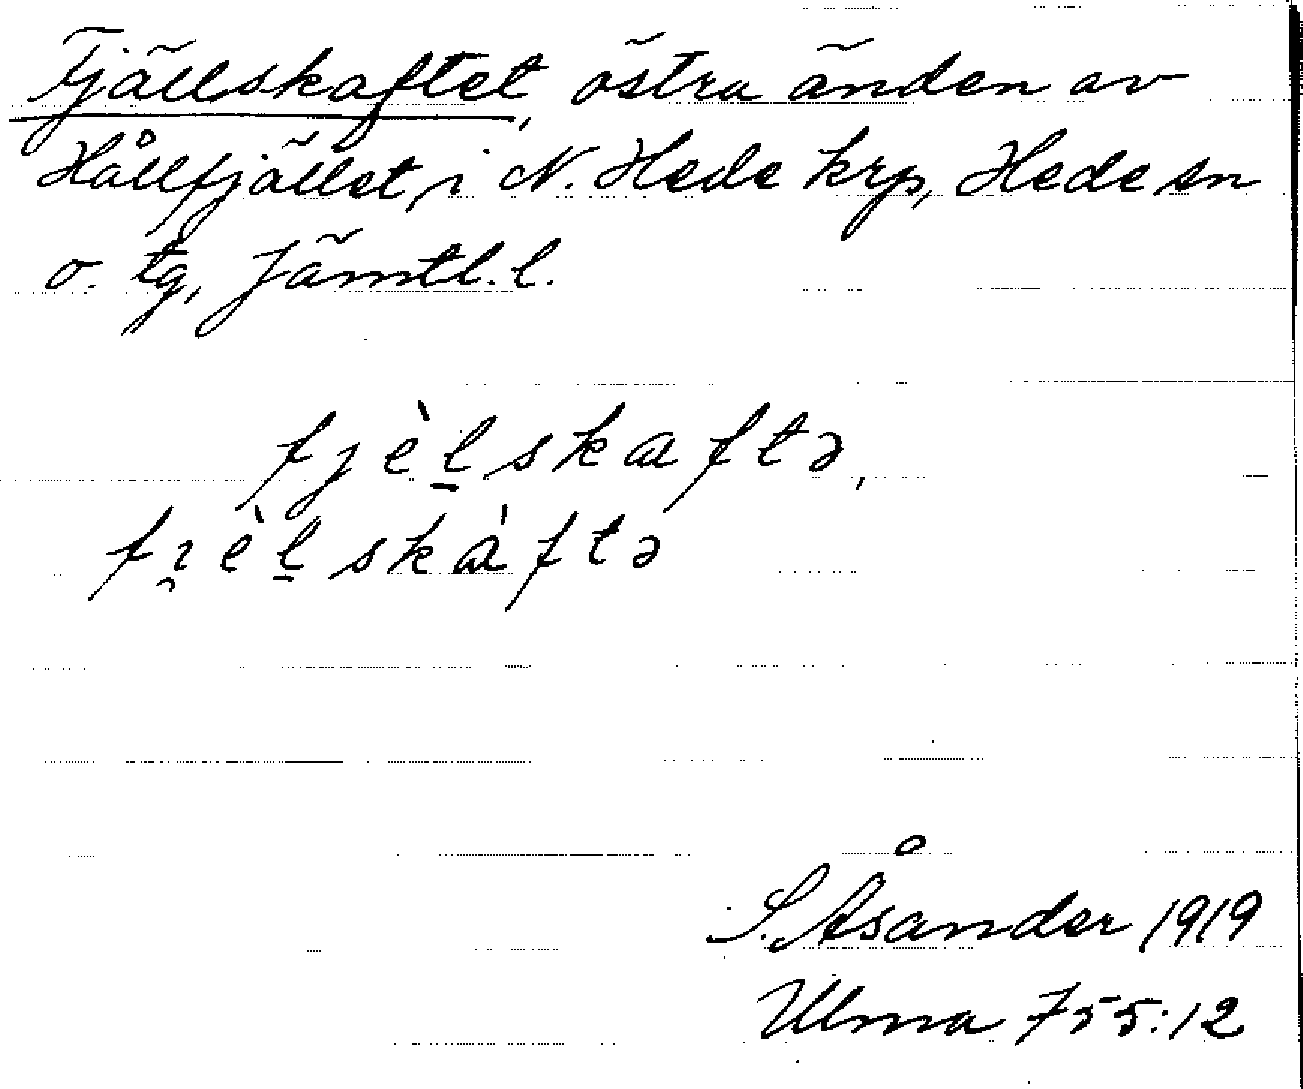 Fjällskaftet, östra änden av
Hållfjället, i N. Hede krp, Hede sn
o. tg, Jämtl. l.
fjèl̠skaftə,
fı̯èl̠skàftə
S. Åsander 1919
Ulma 755:12